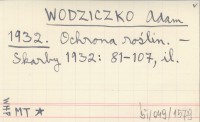 WODZICZKO Adam
1932. Ochrona roślin. –
Skarby 1932: 81–107, il.
WHP
MT *